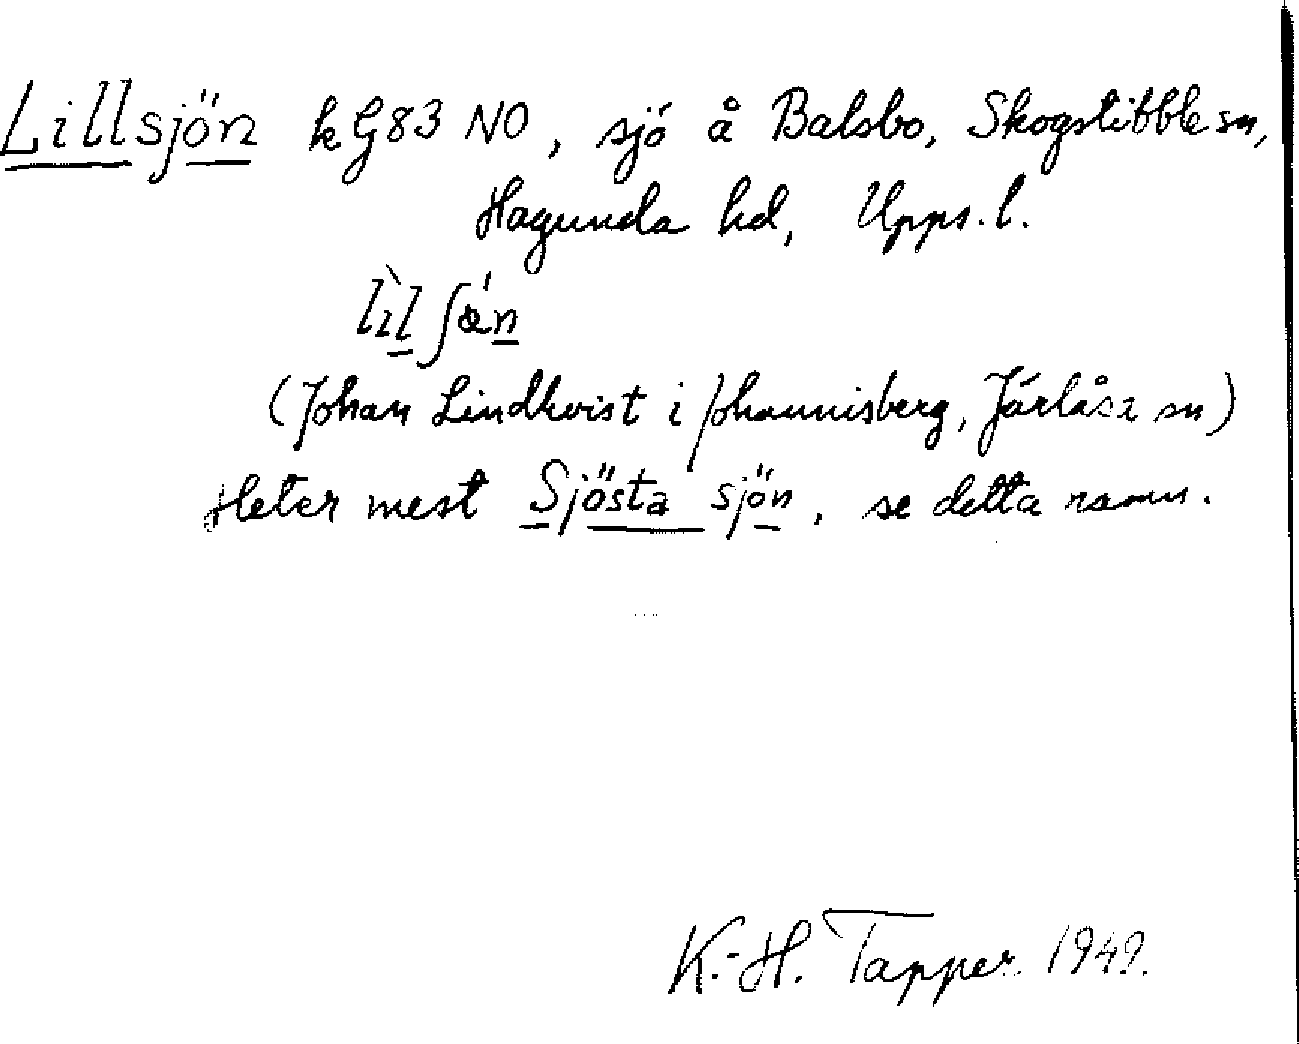 Lillsjön k G83 NO, sjö å Balsbo, Skogstibble sn,
Hagunda hd, Upps. l.
(Johan Lindkvist i Johannisberg, Järlåsa sn)
Heter mest Sjösta sjön, se detta namn.
K.-H. Tapper 1949.